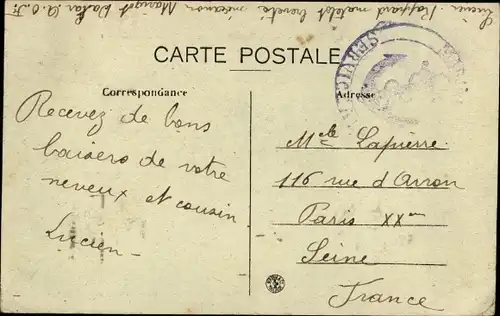 Lucien Rappard matelot breveté mécanon Marigot Dakar A.O.F.
CARTE POSTALE
Correspondance
Adresse
SERVICE
Recevez de bons
baisers de votre
neveux et cousin
Lucien
Melle Lapierre
116 rue d'Avron
Paris XXem
Seine
France